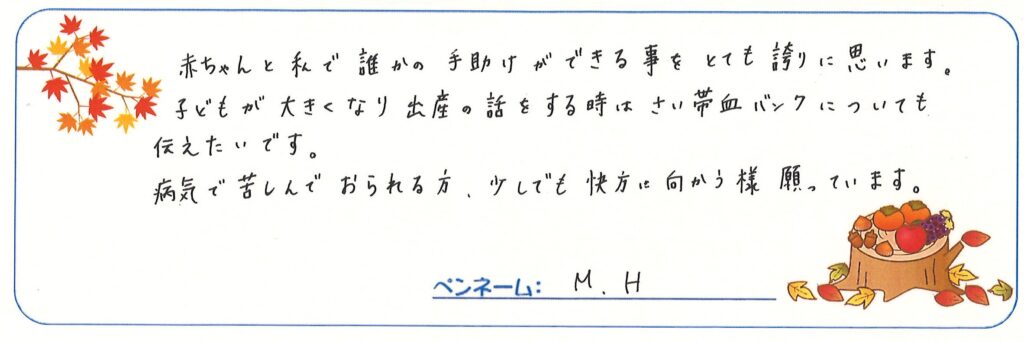 赤ちゃんと私で誰かの手助けができる事をとても誇りに思います。
子どもが大きくなり出産の話をする時はさい帯血バンクについても
伝えたいです。
病気で苦しんでおられる方、少しでも快方に向かう様願っています。
ペンネーム: M. H